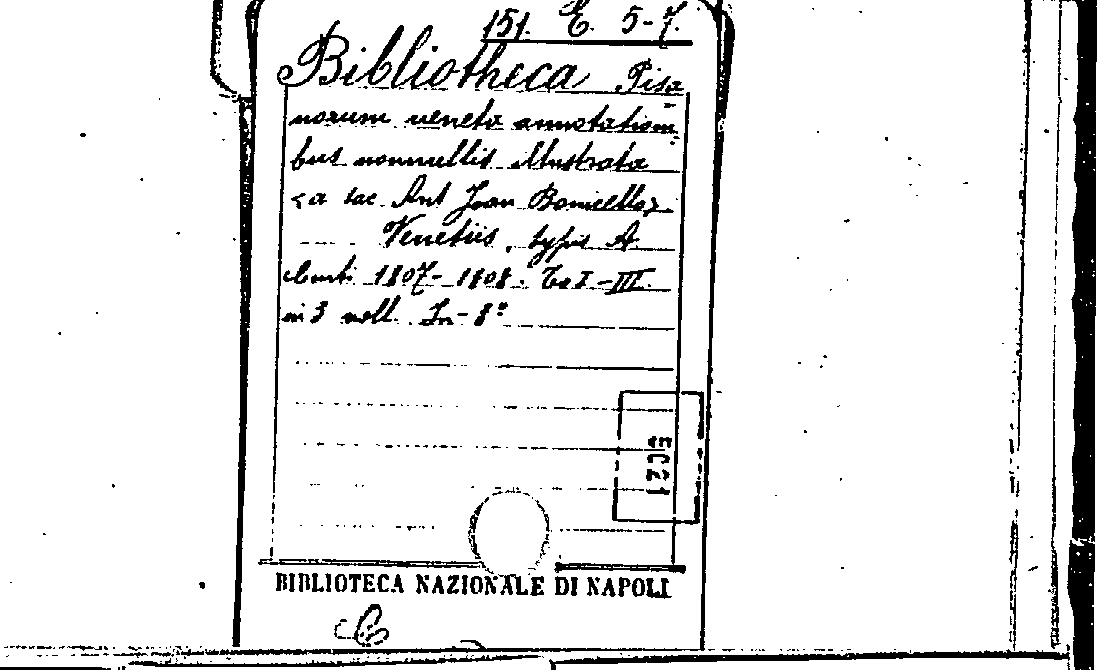 151. E. 5-7.
Bibliotheca Pisa
norum veneta annotationi
bus nonnullis illustrata
<a sac Ant Joan Boniccello>
Venetiis, typis A.
Curti 1807-1808. To I-III.
in 3 voll. In-8°
BIBLIOTECA NAZIONALE DI NAPOLI